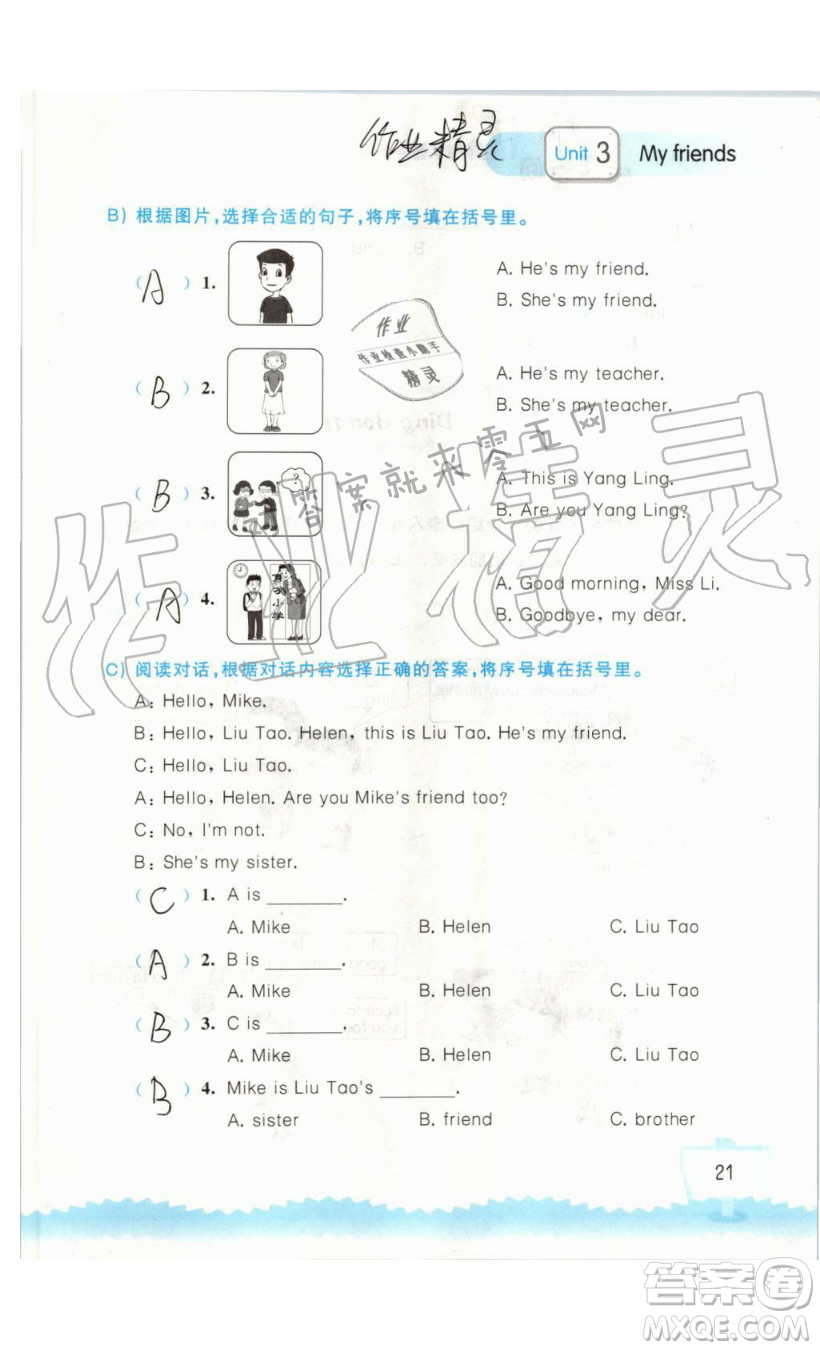 作业精灵
Unit 3 My friends
B）根据图片，选择合适的句子，将序号填在括号里。
（ A ）1. A. He's my friend.
B. She's my friend.
作业
作业检查小助手
精灵
（ B ）2. A. He's my teacher.
B. She's my teacher.
答案就来零五网
（ B ）3. A. This is Yang Ling.
B. Are you Yang Ling?
作业精灵
（ A ）4. A. Good morning, Miss Li.
B. Goodbye, my dear.
C）阅读对话，根据对话内容选择正确的答案，将序号填在括号里。
A: Hello, Mike.
B: Hello, Liu Tao. Helen, this is Liu Tao. He's my friend.
C: Hello, Liu Tao.
A: Hello, Helen. Are you Mike's friend too?
C: No, I'm not.
B: She's my sister.
（ C ）1. A is ________.
A. Mike B. Helen C. Liu Tao
（ A ）2. B is ________.
A. Mike B. Helen C. Liu Tao
（ B ）3. C is ________.
A. Mike B. Helen C. Liu Tao
（ B ）4. Mike is Liu Tao's ________.
A. sister B. friend C. brother
21
答案卷
MXQE.COM